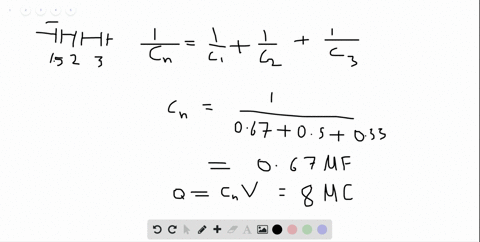 1/Cn = 1/C1 + 1/C2 + 1/C3
1.5 2 3
Cn = 1/(0.67+0.5+0.33)
= 0.67 MF
Q = CnV = 8 MC